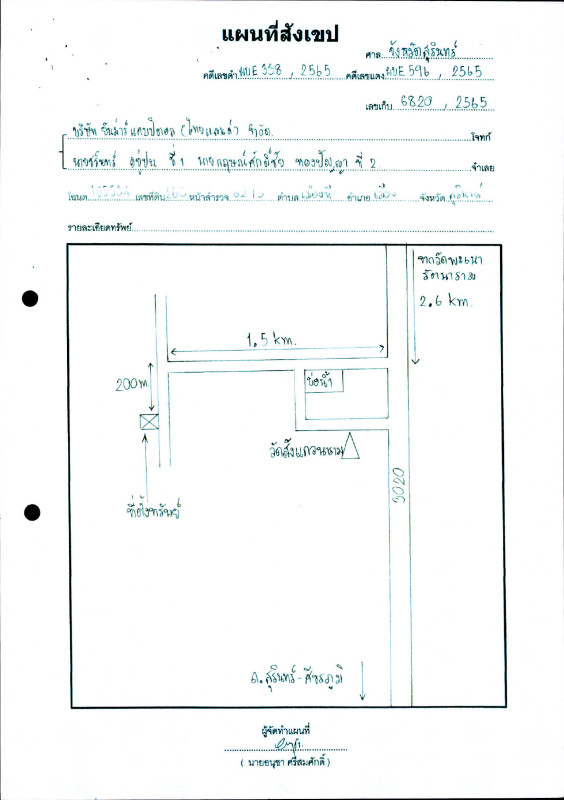 แผนที่สังเขป
ศาล จังหวัดสุรินทร์
คดีเลขดำ ผบE 338 , 2565 คดีเลขแดง ผบE 596 , 2565
เลขเก็บ 6820 , 2565
บริษัท แคปปิตอล (ไทยแลนด์) จำกัด โจทก์
ที่ 1 นายกฤษณ์ศักดิ์ชัย ทองปัญญา ที่ 2 จำเลย
โฉนด เลขที่ดิน หน้าสำรวจ ตำบล อำเภอ เมือง จังหวัด สุรินทร์
รายละเอียดทรัพย์
จากวัดพะเนา
รัตนาราม
2.6 km.
1.5 km.
200 m.
บ่อน้ำ
วัดสั่งแกวนาราม
ที่ตั้งทรัพย์
3020
ถ.สุรินทร์-ศีขรภูมิ
ผู้จัดทำแผนที่
( นายอนุชา ศรีสมศักดิ์ )